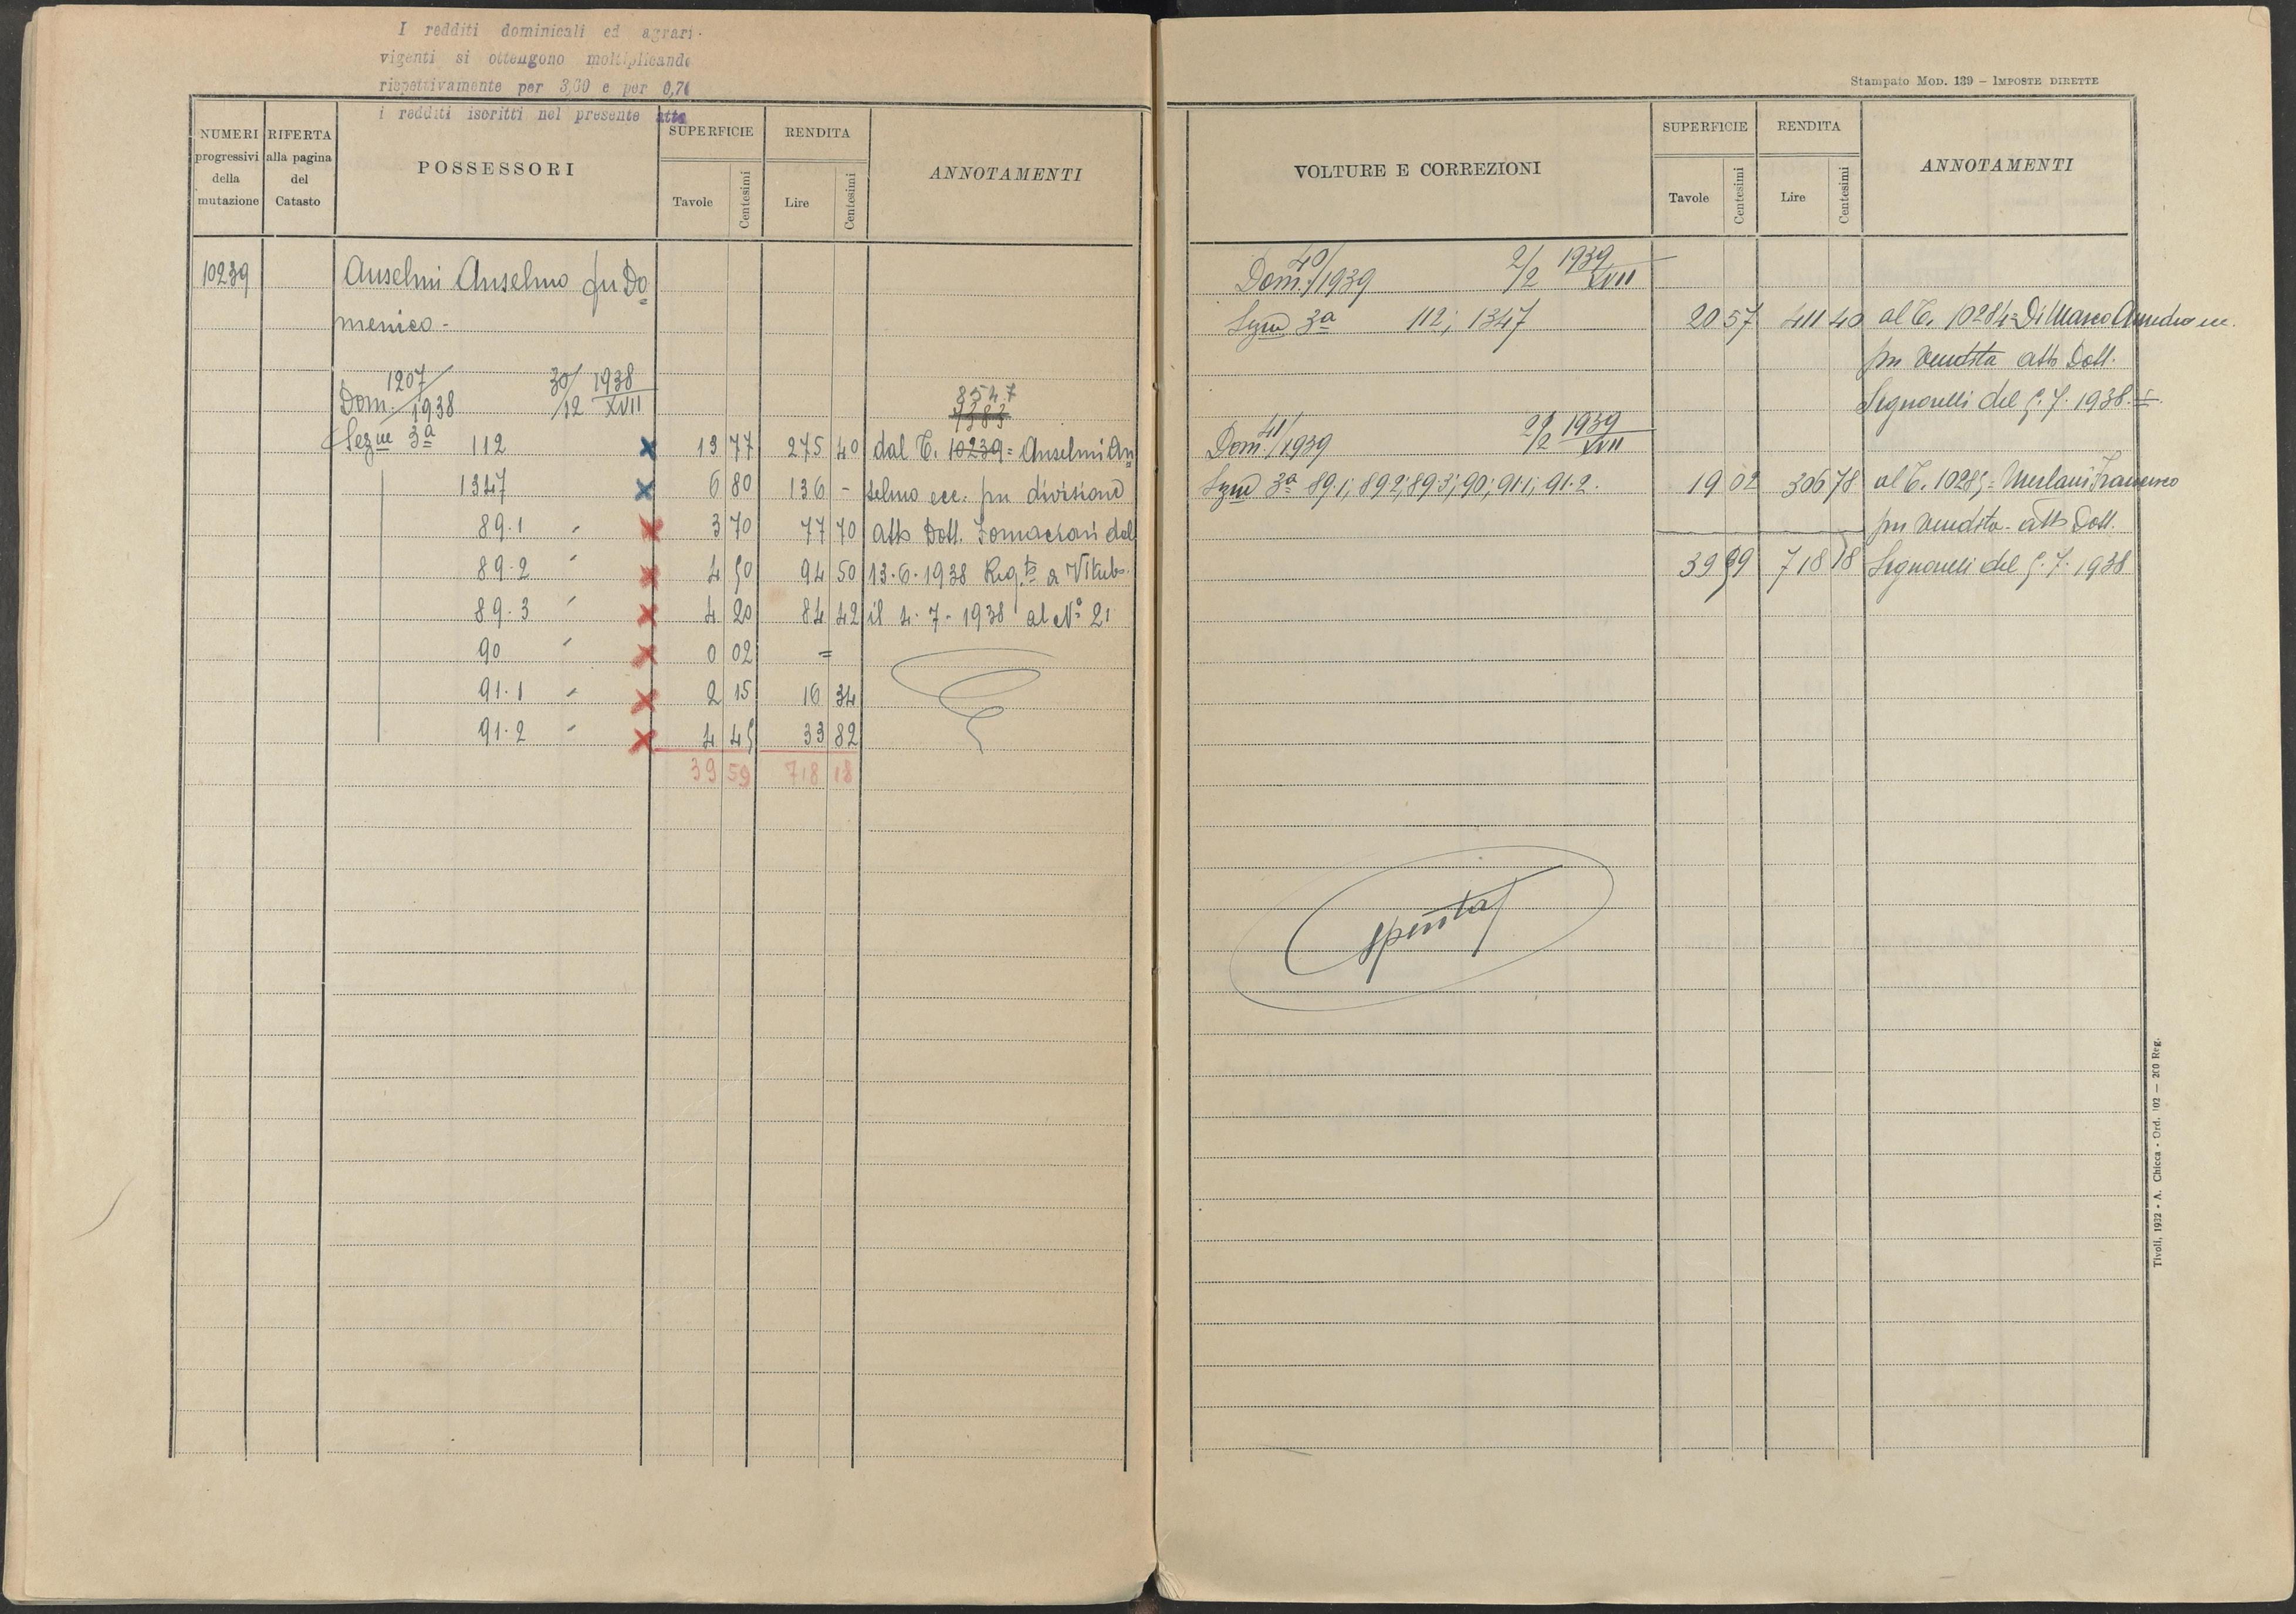 I redditi dominicali ed agrari
vigenti si ottengono moltiplicando
rispettivamente per 3,60 e per 0,7
i redditi iscritti nel presente atto
NUMERI progressivi della mutazione
RIFERTA alla pagina del Catasto
POSSESSORI
SUPERFICIE
Tavole Centesimi
RENDITA
Lire Centesimi
ANNOTAMENTI
10239 Anselmi Anselmo fu Do=
menico -
Dom. 1207/1938 30/12 1938 XVII
8547
Sez.ne 3a 112 13 77 275 40 dal C. 10239= Anselmi An
1347 6 80 136 - selmo ecc. per divisione
89.1 " 3 70 77 70 atto Dott. Tomassari del
89.2 " 4 50 94 50 13.6.1938 Reg.to a Viterbo
89.3 " 4 20 84 42 il 4-7-1938 al No 21
90 " 0 02 =
91.1 " 2 15 16 34
91.2 " 4 45 33 82
39 59 718 18
Stampato Mod. 139 – Imposte dirette
VOLTURE E CORREZIONI
SUPERFICIE
Tavole Centesimi
RENDITA
Lire Centesimi
ANNOTAMENTI
Dom. 40/1939 2/2 1939 XVII
Sez.ne 3a 112; 1347 20 57 411 40 al C. 10284= Di Marco Amedeo ecc.
per vendita atto Dott.
Signorelli del 5.7.1938
Dom. 41/1939 2/2 1939 XVII
Sez.ne 3a 89.1; 89 2; 89.3; 90; 91.1; 91.2. 19 02 306 78 al C. 10285= Merlani Francesco
per vendita - atto Dott.
39 59 718 18 Signorelli del 5.7.1938
spenta
Tivoli, 1932 - A. Chicca - Ord. 102 — 200 Reg.